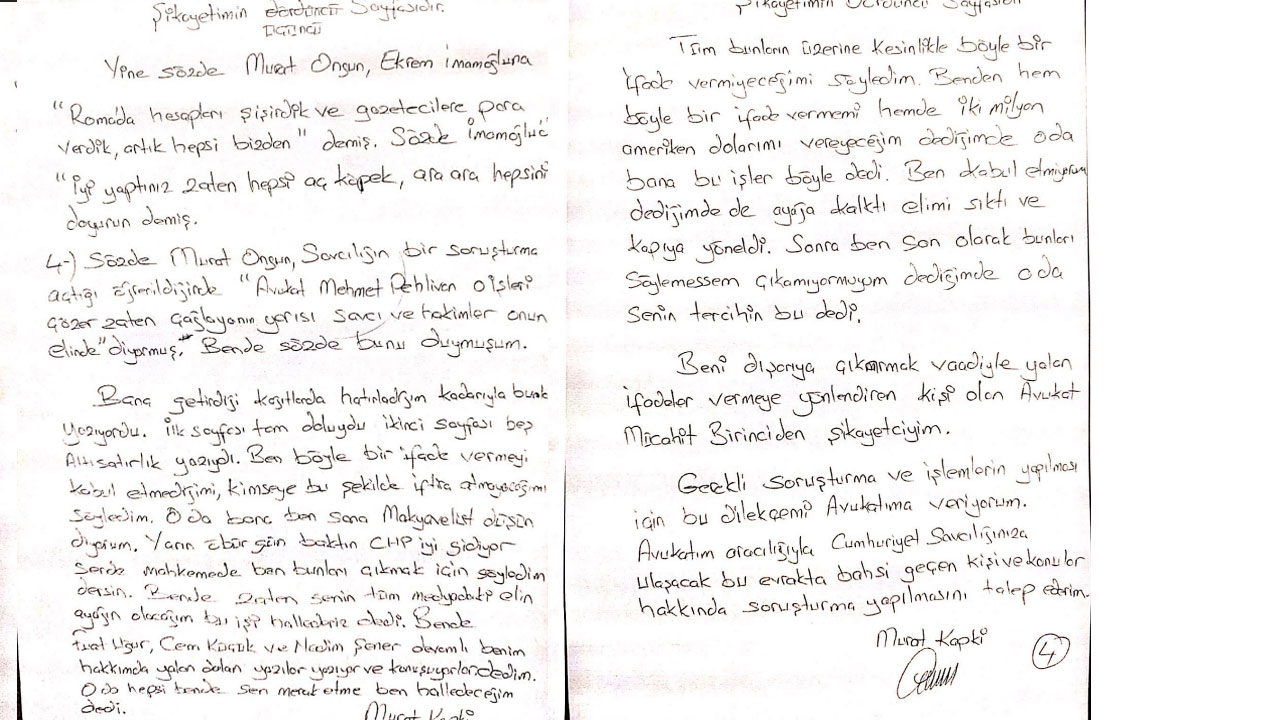 Şikayetimin dördüncü Sayfasıdır.
üçüncü
Yine sözde Murat Ongun, Ekrem imamoğluna
"Romada hesapları şişirdik ve gazetecilere para
verdik, artık hepsi bizden" demiş. Sözde imamoğluda
"iyi yaptınız zaten hepsi aç köpek, ara ara hepsini
doyurun demiş.
4-) Sözde Murat Ongun, Savcılığın bir soruşturma
açtığı öğrenildiğinde "Avukat Mehmet Pehlivan o işleri
çözer zaten Çağlayanın yarısı savcı ve hakimler onun
elinde" diyormuş. Bende sözde bunu duymuşum.
Bana getirdiği kağıtlarda hatırladığım kadarıyla bunlar
yazıyordu. ilk sayfası tam doluydu ikinci sayfası beş
Altı satırlık yazıydı. Ben böyle bir ifade vermeyi
kabul etmediğimi, kimseye bu şekilde iftira atmayacağımı
söyledim. O da bana ben sana Makyavelist düşün
diyorum. Yarın öbür gün baktın CHP iyi gidiyor
sende mahkemede ben bunları çıkmak için söyledim
dersin. Bende zaten senin tüm medyadaki elin
ayağın olacağım bu işi hallederiz dedi. Bende
Fuat Uğur, Cem Küçük ve Nedim Şener devamlı benim
hakkımda yalan dolan yazılar yazıyor ve konuşuyorlar dedim.
O da hepsi bende sen merak etme ben halledeceğim
dedi.
Murat Kapki
Şikayetimin Dördüncü Sayfasıdır
Tüm bunların üzerine kesinlikle böyle bir
ifade vermiyeceğimi söyledim. Benden hem
böyle bir ifade vermemi hemde iki milyon
ameriken dolarımı vereyeceğim dediğimde oda
bana bu işler böyle dedi. Ben kabul etmiyorum
dediğimde de ayağa kalktı elimi sıktı ve
kapıya yöneldi. Sonra ben son olarak bunları
Söylemessem çıkamıyormuyum dediğimde oda
Senin tercihin bu dedi.
Beni dışarıya çıkarmak vaadiyle yalan
ifadeler vermeye yönlendiren kişi olan Avukat
Mücahit Birinciden şikayetciyim.
Gerekli soruşturma ve işlemlerin yapılması
için bu dilekçemi Avukatıma veriyorum.
Avukatım aracılığıyla Cumhuriyet Savcılığınıza
ulaşacak bu evrakta bahsi geçen kişi ve konular
hakkında soruşturma yapılmasını talep ederim.
Murat Kapki
4